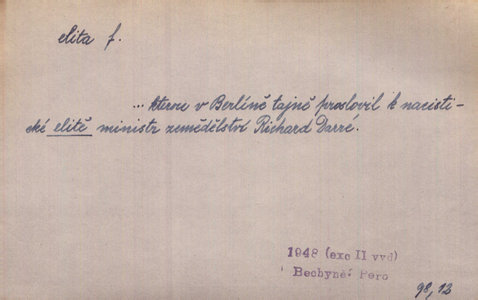 elita f.
... kterou v Berlíně tajně proslovil k nacisti-
cké elitě ministr zemědělství Richard Darré.
1948 (exc II vvd)
Bechyně: Pero
98,12